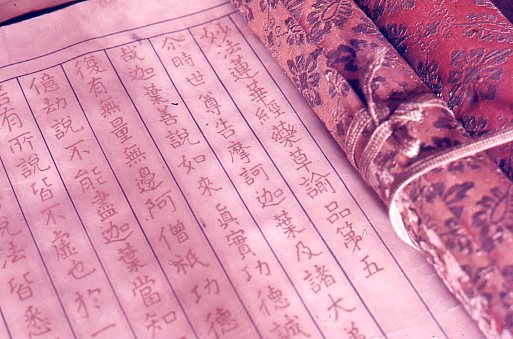 妙法蓮華經藥草諭品第五
尒時世尊告摩訶迦葉及諸大
哉迦葉善說如來真實功德誠
復有無量無邊阿僧祇功德
億劫說不能盡迦葉當知
若有所說皆不虛也於一
說法皆悉